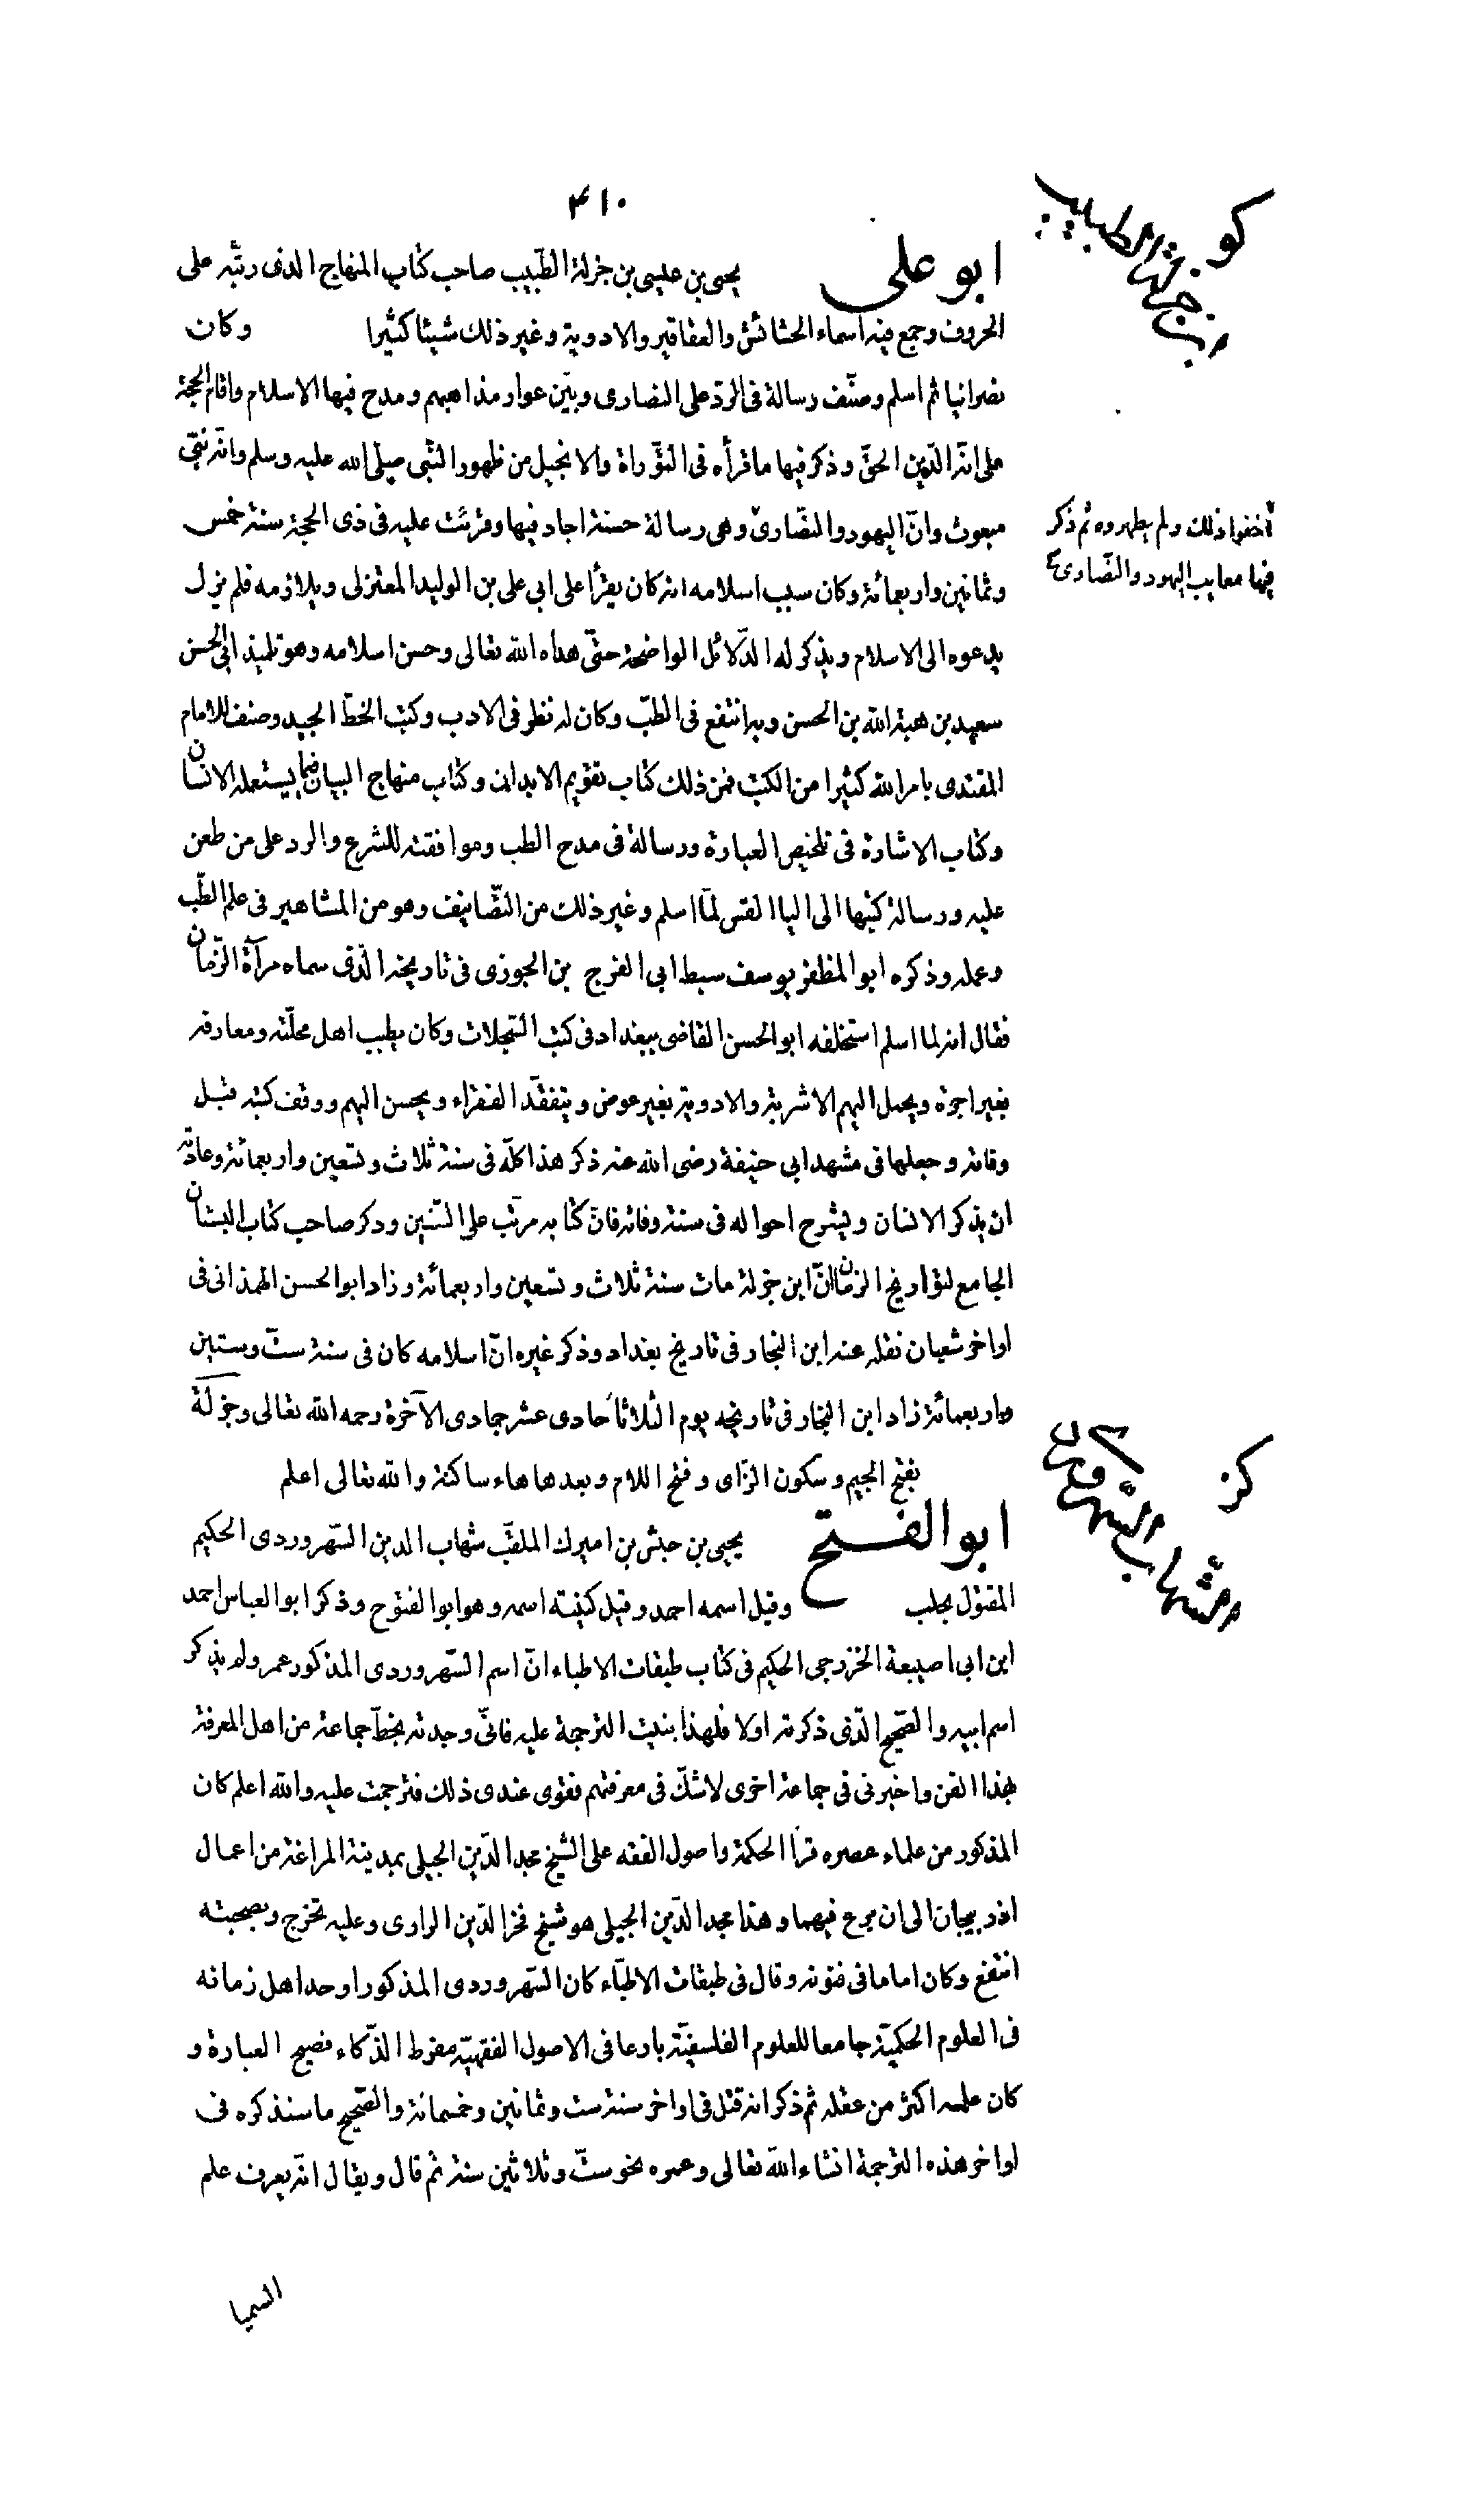 ٤١٠
كو
ابن جزلة الطبيب
ابو على يحيى بن عيسى بن جزلة الطّبيب صاحب كتاب المنهاج الذى رتّبه على
الحروف وجمع فيه اسماء الحشائش والعقاقير والادوية وغير ذلك شيئا كثيرا وكان
نصرانيا ثم اسلم وصنّف رسالة فى الردّ على النصارى وبيّن عوار مذاهبهم ومدح فيها الاسلام واقام الحجة
على انّه الدّين الحقّ وذكر فيها ما قرأه فى التوّراة والانجيل من ظهور النّبى صلى الله عليه وسلم وانّه نبّى
مبعوث وانّ اليهود والنصّارى وهى رسالة حسنة اجاد فيها وقرئت عليه فى ذى الحجة سنة خمس
اخفوا ذلك ولم يظهروه ثم ذكر
فيها معايب اليهود والنصّارى
وثمانين واربعمائة وكان سبب اسلامه انه كان يقرأ على ابى على بن الوليد المعتزلى ويلازمه فلم يزل
يدعوه الى الاسلام ويذكر له الدّلائل الواضحة حتّى هداه الله تعالى وحسن اسلامه وهو تلميذ ابى الحسن
سعيد بن هبة الله بن الحسن وبه انتفع فى الطبّ وكان له نظر فى الادب وكتب الخطّ الجيد وصنف للامام
المقتدى بامر الله كثيرا من الكتب فمن ذلك كتاب تقويم الابدان وكتاب منهاج البيان فيما يستعمله الانسان
وكتاب الاشارة فى تلخيص العبارة ورسالة فى مدح الطب وموافقته للشرع والرد على من طعن
عليه ورسالة كتبها الى اليا القس لمّا اسلم وغير ذلك من التصّانيف وهو من المشاهير فى علم الطّب
وعمله وذكره ابو المظفر يوسف سبط ابى الفرج بن الجوزى فى تاريخه الذّى سماه مرآة الزّمان
فقال انه لما اسلم استخلفه ابو الحسن القاضى ببغداد فى كتب السّجلات وكان يطبب اهل محلّته ومعارفه
بغير اجرة ويحمل اليهم الاشربة والادوية بغير عوض ويتفقد الفقراء ويحسن اليهم ووقف كتبه قبل
وفاته وجعلها فى مشهد ابى حنيفة رضى الله عنه ذكر هذا كلّه فى سنة ثلاث وتسعين واربعمائة وعادته
ان يذكر الانسان ويشرح احواله فى سنة وفاته فانّ كتابه مرتّب على السّنين وذكر صاحب كتاب البستان
الجامع لتواريخ الزمان انّ ابن جزلة مات سنة ثلاث وتسعين واربعمائة وزاد ابو الحسن الهمذانى فى
اواخر شعبان نقله عنه ابن النجار فى تاريخ بغداد وذكر غيره انّ اسلامه كان فى سنة ستّ وستين
واربعمائة زاد ابن النجار فى تاريخه يوم الثلاثا حادى عشر جمادى الآخرة رحمه الله تعالى وجزلة
بفتح الجيم وسكون الزّاى وفتح اللام وبعدها هاء ساكنة والله تعالى اعلم
كز
الشّهاب السّهروردى
ابو الفتح يحيى بن حبش بن اميرك الملقّب شهاب الدين السّهروردى الحكيم
المقتول بحلب وقيل اسمه احمد وقيل كنيته اسمه وهو ابو الفتوح وذكر ابو العباس احمد
ابن ابى اصيبعة الخزرجى الحكيم فى كتاب طبقات الاطباء انّ اسم السّهروردى المذكور عمر ولم يذكر
اسم ابيه والصّحيح الذّى ذكرته اولا فلهذا بنيت الترجمة عليه فانّى وجدته بخطّ جماعة من اهل المعرفة
بهذا الفن واخبرنى فى جماعة اخرى لا شكّ فى معرفتهم فقوى عندى ذلك فترجمت عليه والله اعلم كان
المذكور من علماء عصره قرأ الحكمة واصول الفقه على الشّيخ مجد الدّين الجيلى بمدينة المراغة من اعمال
اذربيجان الى ان برع فيهما وهذا مجد الدّين الجيلى هو شيخ فخر الدّين الرازى وعليه تخرج وبصحبته
انتفع وكان اماما فى فنونه وقال فى طبقات الاطبّاء كان السّهروردى المذكور اوحد اهل زمانه
فى العلوم الحكميّة جامعا للعلوم الفلسفيّة بارعا فى الاصول الفقهيّة مفرط الذّكاء فصيح العبارة و
كان علمه اكثر من عقله ثم ذكر انه قتل فى اواخر سنة ست وثمانين وخمسمائة والصّحيح ما سنذكره فى
اواخر هذه الترجمة انشاء الله تعالى وعمره نحو ستّ وثلاثين سنة ثم قال ويقال انّه يعرف علم
السّميا